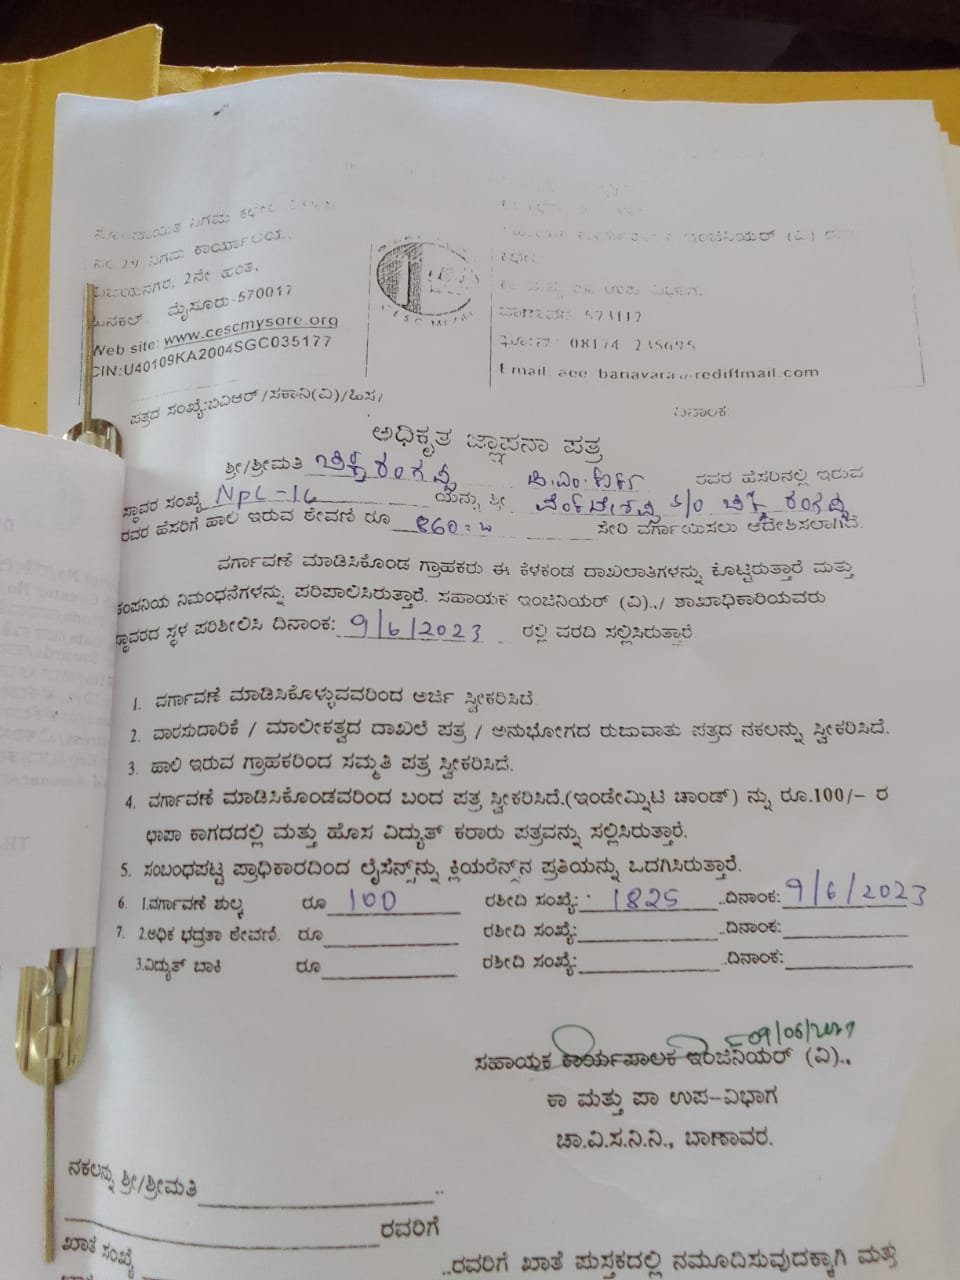 ನೋಂದಾಯಿತ ನಿಗಮ ಕಛೇರಿ
ನಂ 29, ನಿಗಮ ಕಾರ್ಯಾಲಯ,
ವಿಜಯನಗರ, 2ನೇ ಹಂತ,
ಹಿನಕಲ್, ಮೈಸೂರು-570017
Web site: www.cescmysore.org
CIN:U40109KA2004SGC035177
ಇಂಜಿನಿಯರ್ (ವಿ)
ಕಛೇರಿ
ಉಪ ವಿಭಾಗ,
ಬಾಣಾವರ 573112
ಫೋನ್: 08174 235695
Email aee_banavara@rediffmail.com
ಪತ್ರದ ಸಂಖ್ಯೆ:ಬಿವಿಆರ್/ಸಕಾನಿ(ವಿ)/ಹಿಸ/
ದಿನಾಂಕ:
ಅಧಿಕೃತ ಜ್ಞಾಪನಾ ಪತ್ರ
ಶ್ರೀ/ಶ್ರೀಮತಿ ಚಿಕ್ಕರಂಗಪ್ಪ ರವರ ಹೆಸರಿನಲ್ಲಿ ಇರುವ
ಸ್ಥಾವರ ಸಂಖ್ಯೆ NPL-16 ಯನ್ನು ಶ್ರೀ ವೆಂಕಟೇಶಪ್ಪ s/o ಚಿಕ್ಕರಂಗಪ್ಪ
ರವರ ಹೆಸರಿಗೆ ಹಾಲಿ ಇರುವ ಠೇವಣಿ ರೂ 860= ಸೇರಿ ವರ್ಗಾಯಿಸಲು ಆದೇಶಿಸಲಾಗಿದೆ.
ವರ್ಗಾವಣೆ ಮಾಡಿಸಿಕೊಂಡ ಗ್ರಾಹಕರು ಈ ಕೆಳಕಂಡ ದಾಖಲಾತಿಗಳನ್ನು ಕೊಟ್ಟಿರುತ್ತಾರೆ ಮತ್ತು
ಕಂಪನಿಯ ನಿಮಂಧನೆಗಳನ್ನು ಪರಿಪಾಲಿಸಿರುತ್ತಾರೆ. ಸಹಾಯಕ ಇಂಜಿನಿಯರ್ (ವಿ).,/ ಶಾಖಾಧಿಕಾರಿಯವರು
ಸ್ಥಾವರದ ಸ್ಥಳ ಪರಿಶೀಲಿಸಿ ದಿನಾಂಕ: 9/6/2023 ರಲ್ಲಿ ವರದಿ ಸಲ್ಲಿಸಿರುತ್ತಾರೆ.
1. ವರ್ಗಾವಣೆ ಮಾಡಿಸಿಕೊಳ್ಳುವವರಿಂದ ಅರ್ಜಿ ಸ್ವೀಕರಿಸಿದೆ
2. ವಾರಸುದಾರಿಕೆ / ಮಾಲೀಕತ್ವದ ದಾಖಲೆ ಪತ್ರ / ಅನುಭೋಗದ ರುಜುವಾತು ಪತ್ರದ ನಕಲನ್ನು ಸ್ವೀಕರಿಸಿದೆ.
3. ಹಾಲಿ ಇರುವ ಗ್ರಾಹಕರಿಂದ ಸಮ್ಮತಿ ಪತ್ರ ಸ್ವೀಕರಿಸಿದೆ.
4. ವರ್ಗಾವಣೆ ಮಾಡಿಸಿಕೊಂಡವರಿಂದ ಬಂದ ಪತ್ರ ಸ್ವೀಕರಿಸಿದೆ.(ಇಂಡೇಮ್ನಿಟಿ ಬಾಂಡ್) ನ್ನು ರೂ.100/- ರ
ಛಾಪಾ ಕಾಗದದಲ್ಲಿ ಮತ್ತು ಹೊಸ ವಿದ್ಯುತ್ ಕರಾರು ಪತ್ರವನ್ನು ಸಲ್ಲಿಸಿರುತ್ತಾರೆ.
5. ಸಂಬಂಧಪಟ್ಟ ಪ್ರಾಧಿಕಾರದಿಂದ ಲೈಸೆನ್ಸ್‌ನ್ನು ಕ್ಲಿಯರೆನ್ಸ್‌ನ ಪ್ರತಿಯನ್ನು ಒದಗಿಸಿರುತ್ತಾರೆ.
6. 1.ವರ್ಗಾವಣೆ ಶುಲ್ಕ ರೂ 100 ರಶೀದಿ ಸಂಖ್ಯೆ: 1825 ದಿನಾಂಕ: 9/6/2023
7. 2.ಅಧಿಕ ಭದ್ರತಾ ಠೇವಣಿ. ರೂ ರಶೀದಿ ಸಂಖ್ಯೆ: ದಿನಾಂಕ:
3.ವಿದ್ಯುತ್ ಬಾಕಿ ರೂ ರಶೀದಿ ಸಂಖ್ಯೆ: ದಿನಾಂಕ:
ಸಹಾಯಕ ಕಾರ್ಯಪಾಲಕ ಇಂಜಿನಿಯರ್ (ವಿ).,
ಕಾ ಮತ್ತು ಪಾ ಉಪ-ವಿಭಾಗ
ಚಾ.ವಿ.ಸ.ನಿ.ನಿ., ಬಾಣಾವರ.
ನಕಲನ್ನು ಶ್ರೀ/ಶ್ರೀಮತಿ
ರವರಿಗೆ
ಖಾತೆ ಸಂಖ್ಯೆ ..ರವರಿಗೆ ಖಾತೆ ಪುಸ್ತಕದಲ್ಲಿ ನಮೂದಿಸುವುದಕ್ಕಾಗಿ ಮತ್ತು